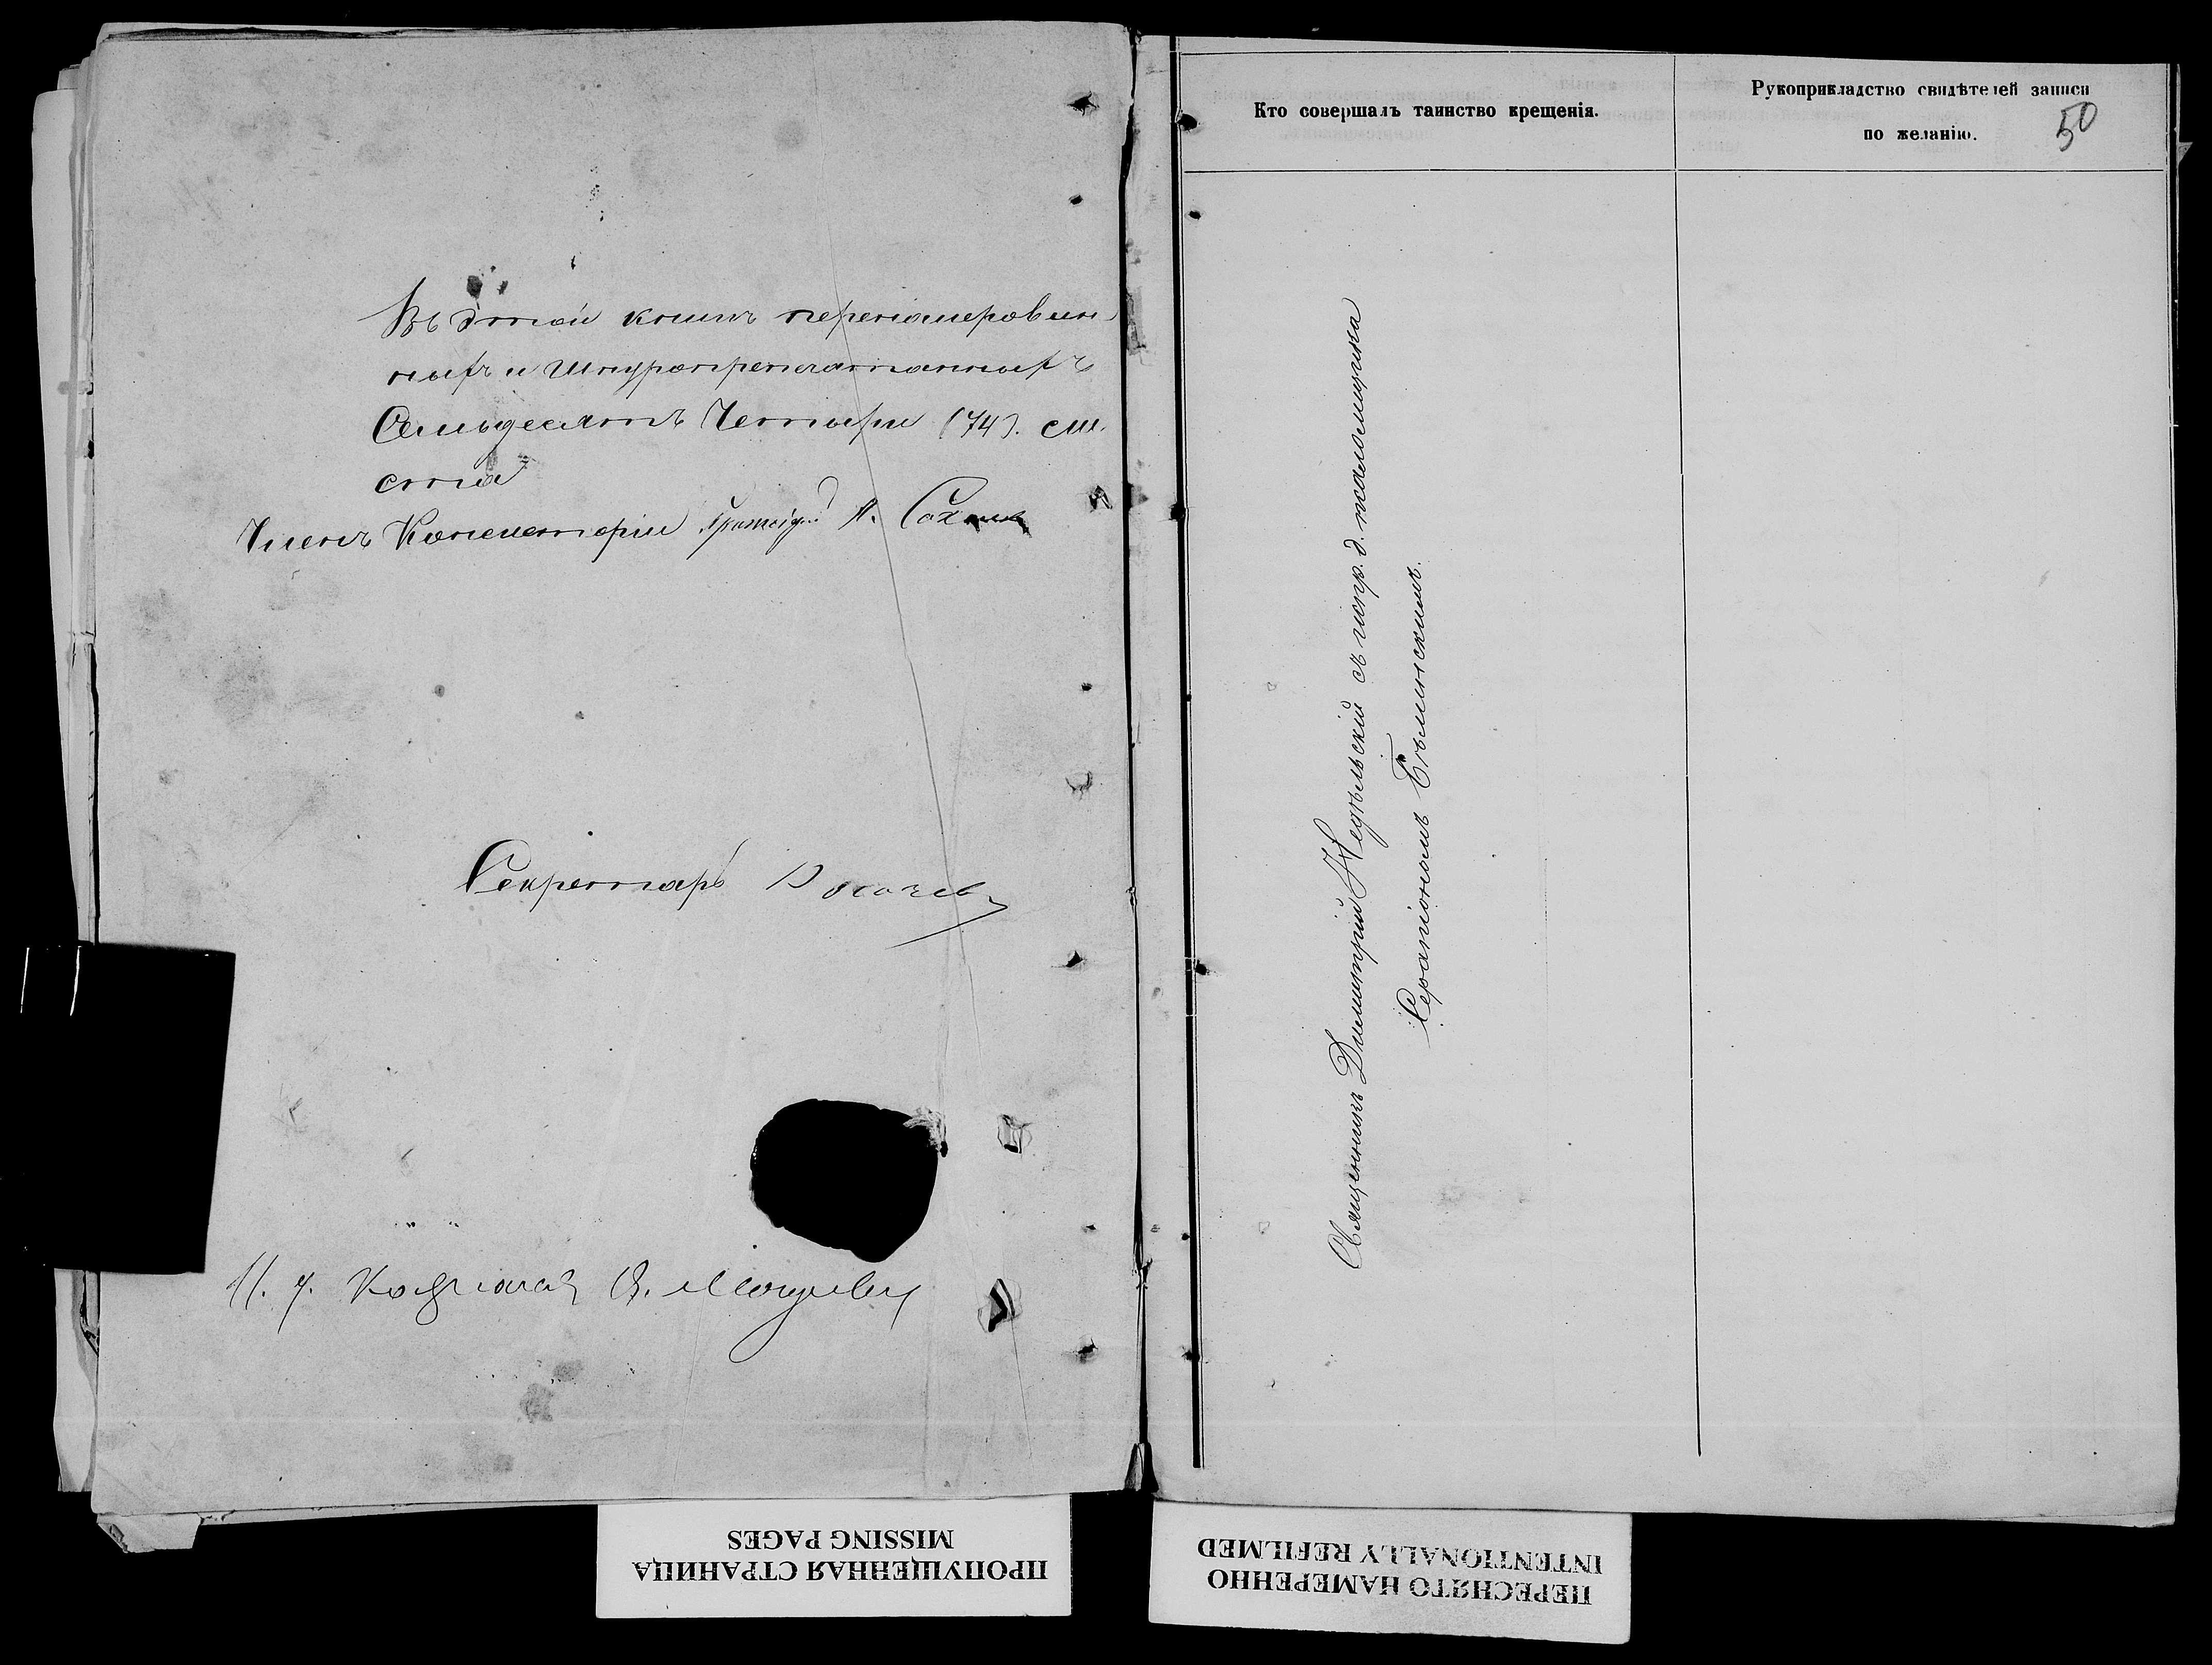 Въ этой книгѣ перенумерован-
ныхъ и шнуропрепечатанныхъ
Семьдесятъ Четыре (74). ли-
ста
Членъ Консисторіи А.
Секретарь
Кто совершалъ таинство крещенія.
Рукоприкладство свидѣтелей записи
по желанію.
50
Священникъ Димитрій Недѣльскій съ испр. д. псаломщика
Серапіономъ Бѣлинскимъ.
ПРОПУЩЕННАЯ СТРАНИЦА
MISSING PAGES
ПЕРЕСНЯТО НАМЕРЕННО
INTENTIONALLY REFILMED